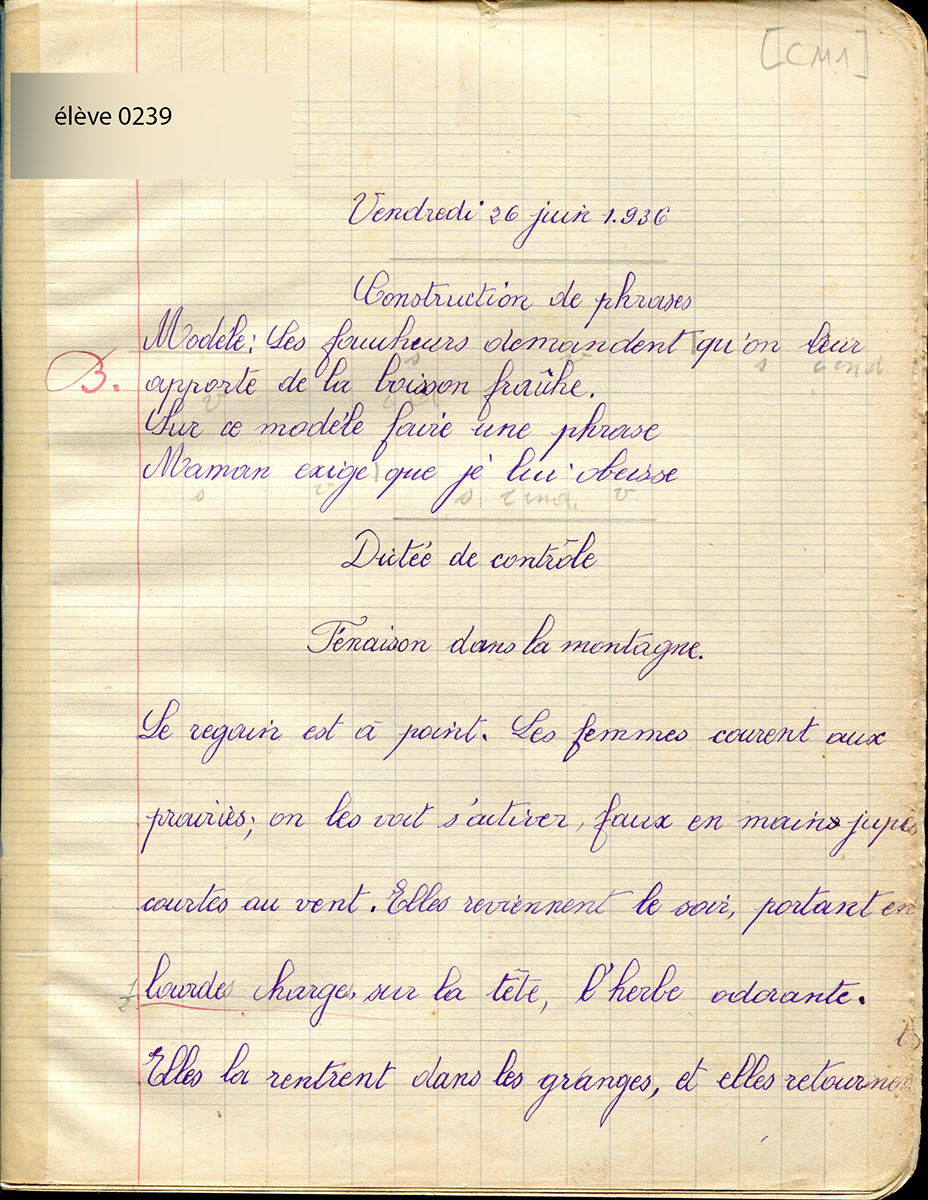 [CM1]
élève 0239
Vendredi 26 juin 1.936
Construction de phrases
Modèle: Les faucheurs demandent qu'on leur
s c ind
B.
apporte de la boisson fraîche.
v
Sur ce modèle faire une phrase
Maman exige que je lui obeisse
s v s c ind. v
Dictée de contrôle
Fenaison dans la montagne.
Le regain est à point. Les femmes courent aux
prairies; on les voit s'activer, faux en mains jupes
courtes au vent. Elles reviennent le soir, portant en
1/2 lourdes charges sur la tête, l'herbe odorante.
Elles la rentrent dans les granges, et elles retournent